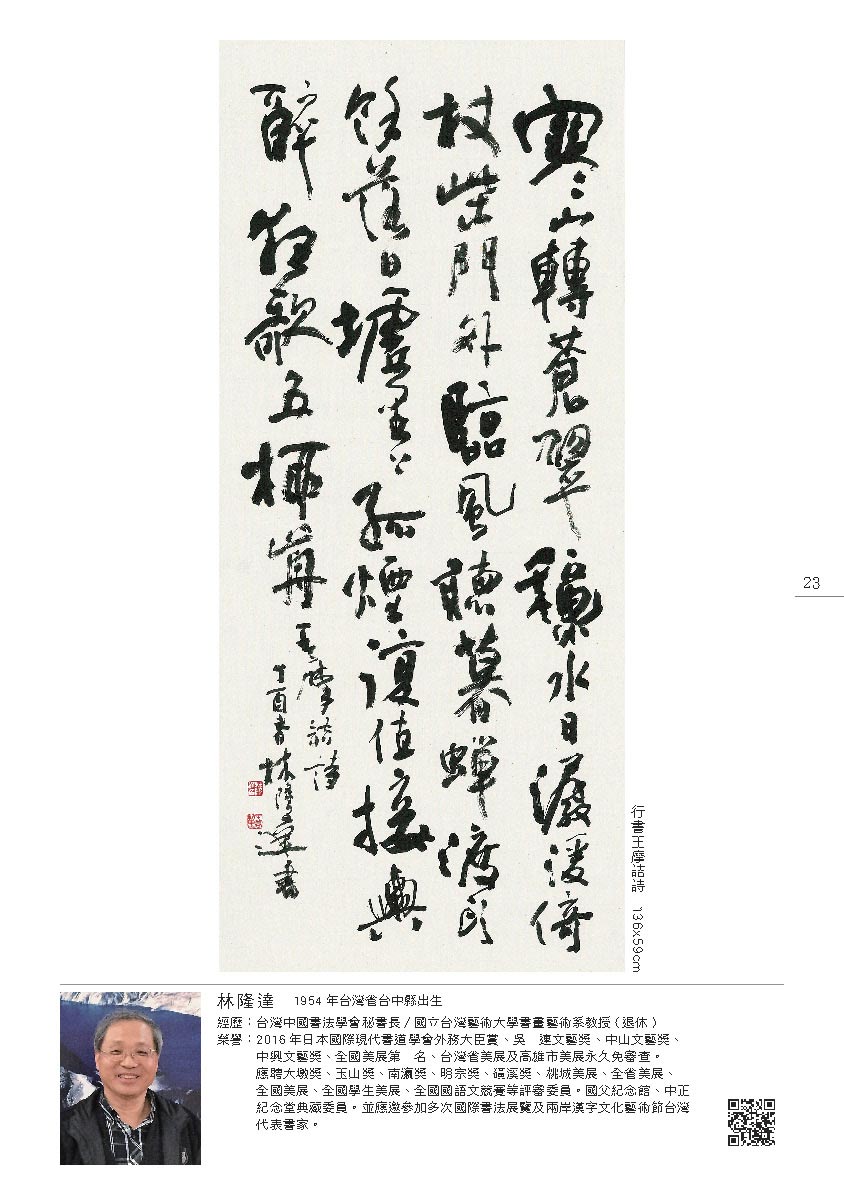 寒山轉蒼翠龝水日潺湲倚
杖柴門外臨風聽暮蟬渡頭
餘落日墟里上孤煙復值接輿
醉狂歌五柳前
王摩詰詩
丁酉春林隆達書
行書王摩詰詩 136x59cm
23
林隆達 1954 年台灣省台中縣出生
經歷：台灣中國書法學會秘書長／國立台灣藝術大學書畫藝術系教授（退休）
榮譽：2016 年日本國際現代書道學會外務大臣賞、吳　連文藝獎、中山文藝獎、
中興文藝獎、全國美展第　名、台灣省美展及高雄市美展永久免審查。
應聘大墩獎、玉山獎、南瀛獎、明宗獎、磺溪獎、桃城美展、全省美展、
全國美展、全國學生美展、全國國語文競賽等評審委員。國父紀念館、中正
紀念堂典藏委員。並應邀參加多次國際書法展覽及兩岸漢字文化藝術節台灣
代表書家。